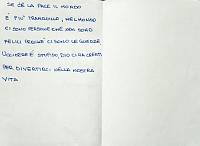 SE C'È LA PACE IL MONDO
È PIU' TRANQUILLO, NEL MONDO
CI SONO PERSONE CHE NON SONO
FELICI PERCHÈ CI SONO LE GUERRE,
UCCIDERE È STUPIDO, DIO CI HA CREATI
PER DIVERTIRCI NELLA NOSTRA
VITA